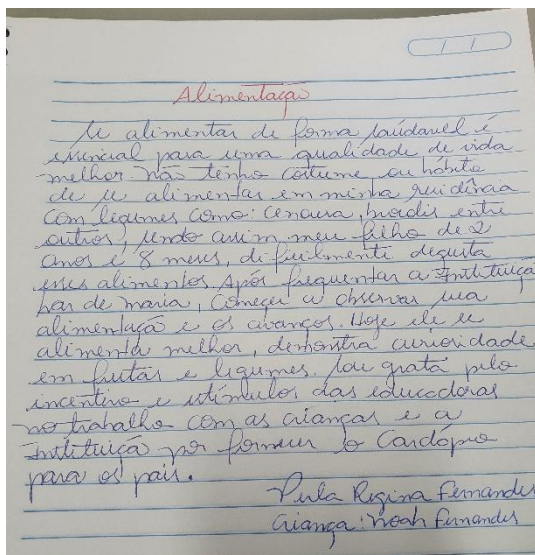 Alimentação
Se alimentar de forma saúdavel é
essencial para uma qualidade de vida
melhor. não tenho costume ou hábito
de se alimentar em minha residência
com legumes como: cenoura, entre
outros, sendo assim meu filho de 2
anos e 8 meses, dificilmente degusta
esses alimentos. Após frequentar a Instituiçã
Lar de maria, comecei a observar sua
alimentação e os avanços. Hoje ele se
alimenta melhor, demonstra curiosidade
em frutas e legumes. Sou grata pelo
incentivo e estímulos das educadoras
no trabalho com as crianças e a
Instituiçã por fornecer o Cardápio
para os pais.
Regina Fernandes
Criança: Noah Fernandes